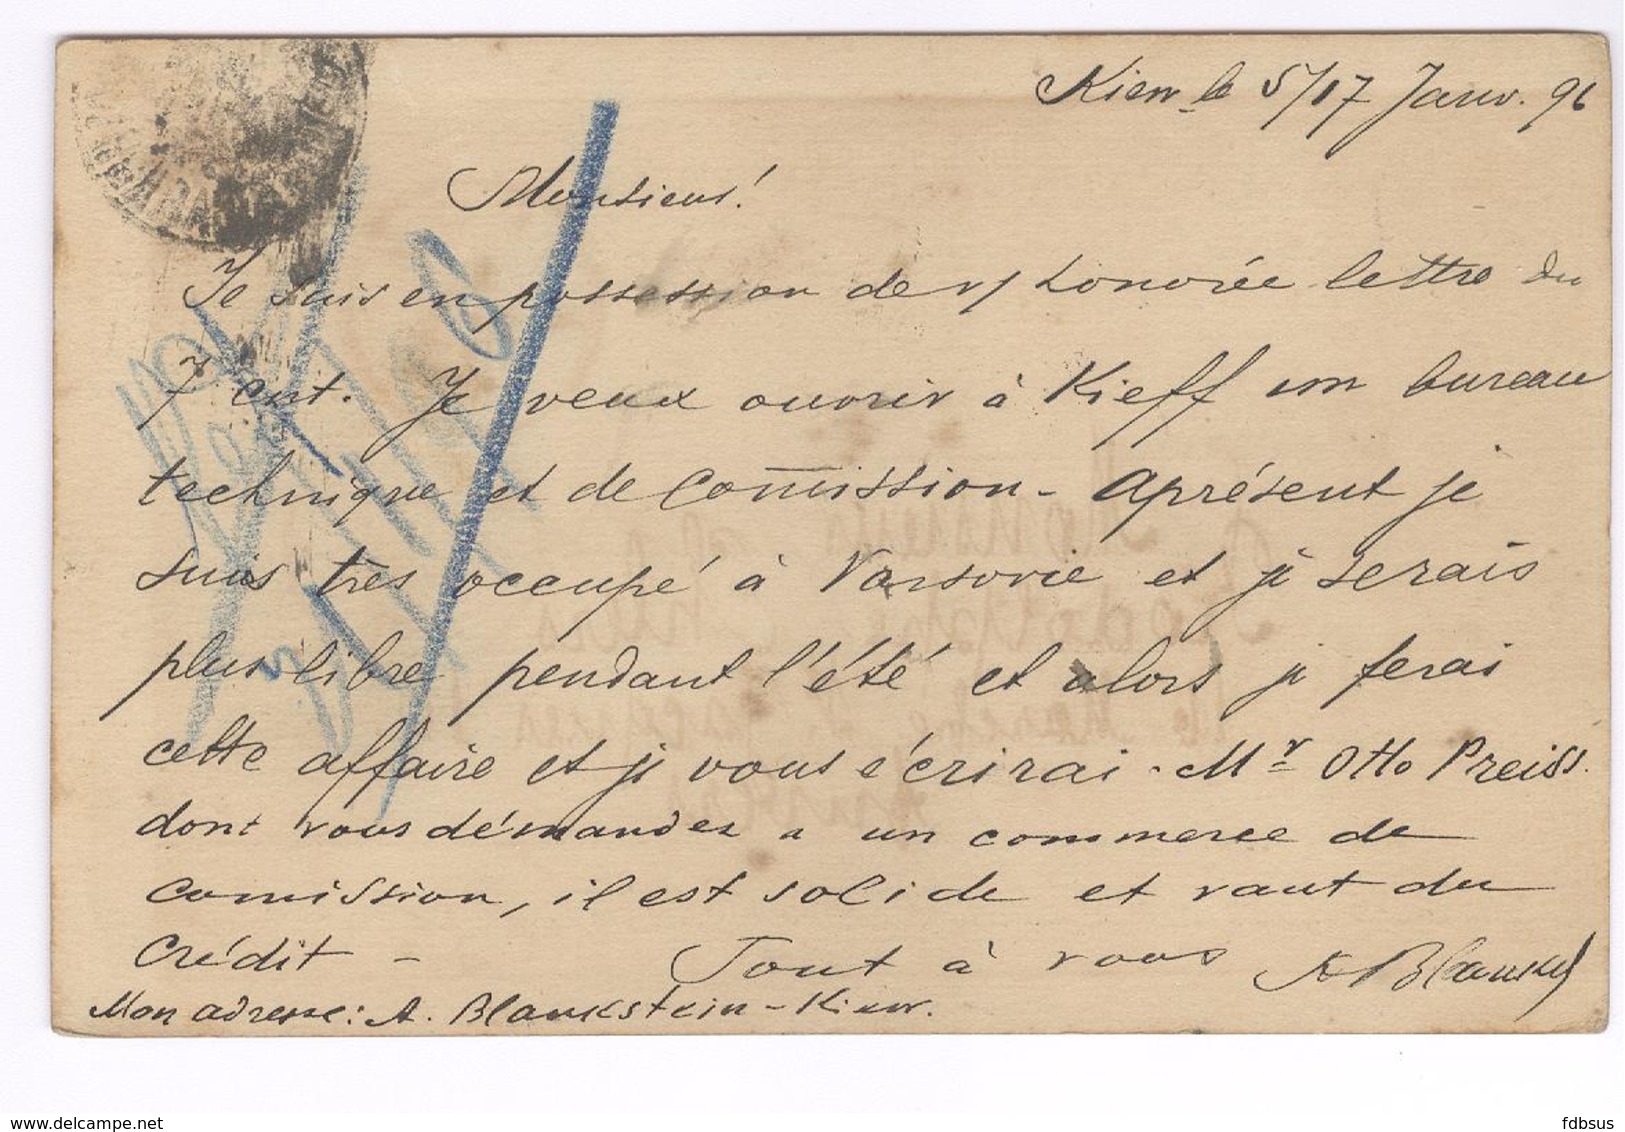 Kiew le 5/17 Janv. 96
Monsieur!
Je suis en possession de v/ honorée lettre du
7 crt. Je veux ouvrir à Kieff un bureau
technique et de Comission - Aprésent je
suis très occupé à Varsovie et je serais
plus libre pendant l'été et alors je ferai
cette affaire et je vous écrirai. Mr Otto Preiss.
dont vous démandez a un commerce de
comission, il est solide et vaut du
Crédit -
Tout à vous
Mon adresse: A. Blankstein - Kiew.
delcampe.net
fdbsus